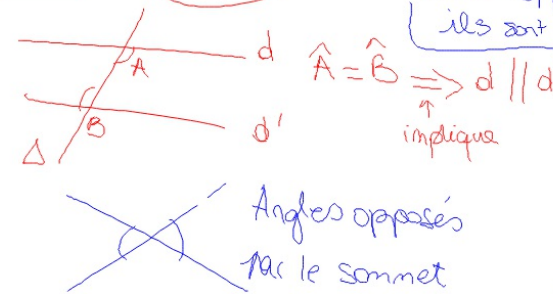 ils sont
d
A
Â = B̂ => d // d
B
d'
implique
Δ
Angles opposés
par le sommet